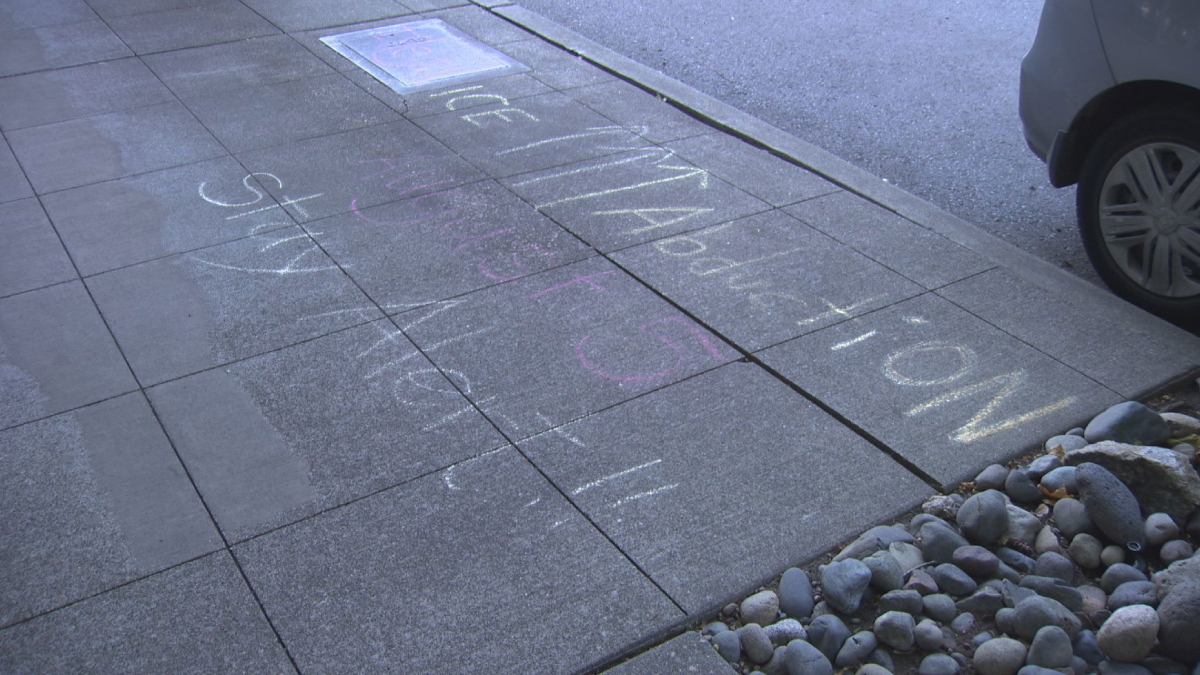 ICE AbductiON
AuGUST 5
Stay Alert !!